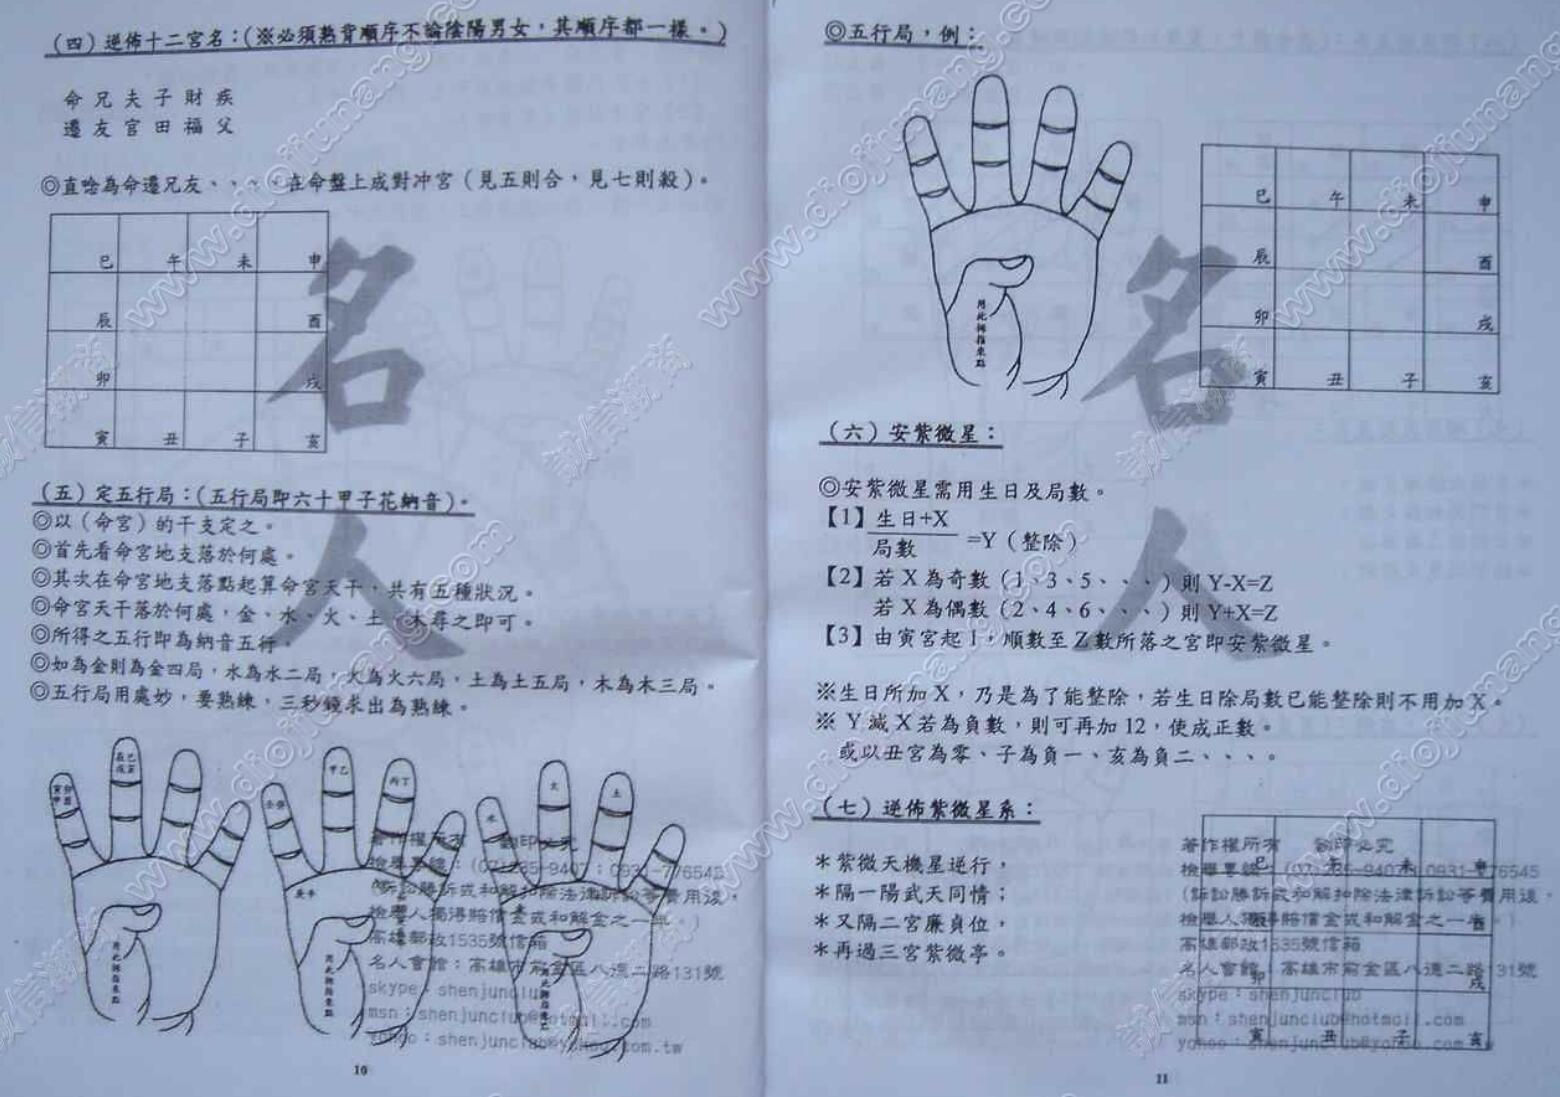 (四)逆佈十二宮名：(※必須熟背順序不論陰陽男女，其順序都一樣。)
命兄夫子財疾
遷友宮田福父
◎直唸為命遷兄友、、、、在命盤上成對冲宮(見五則合，見七則殺)。
巳 午 未 申
辰 酉
卯 戌
寅 丑 子 亥
(五)定五行局：(五行局即六十甲子花納音)。
◎以(命宮)的干支定之。
◎首先看命宮地支落於何處。
◎其次在命宮地支落點起算命宮天干，共有五種狀況。
◎命宮天干落於何處，金、水、火、土、木尋之即可。
◎所得之五行即為納音五行。
◎如為金則為金四局，水為水二局，火為火六局，土為土五局，木為木三局。
◎五行局用處妙，要熟練，三秒鐘求出為熟練。
甲乙
丙丁
水
火
土
用此拇指來點
用此拇指來點
著作權所有 翻印必究
檢舉專線：(07)235-9407；0931-776545
(訴訟勝訴或和解扣除法律訴訟等費用後，
檢舉人獨得賠償金或和解金之一半。)
高雄郵政1535號信箱
名人會館：高雄市前金區八德二路131號
skype：shenjunclub
msn：shenjunclub@hotmail.com
yahoo：shenjunclub@yahoo.com.tw
10
◎五行局，例：
用此拇指來點
巳 午 未 申
辰 酉
卯 戌
寅 丑 子 亥
(六)安紫微星：
◎安紫微星需用生日及局數。
【1】生日+X
局數 =Y(整除)
【2】若X為奇數(1、3、5、、、)則Y-X=Z
若X為偶數(2、4、6、、、)則Y+X=Z
【3】由寅宮起1，順數至Z數所落之宮即安紫微星。
※生日所加X，乃是為了能整除，若生日除局數已能整除則不用加X。
※ Y減X若為負數，則可再加12，使成正數。
或以丑宮為零、子為負一、亥為負二、、、。
(七)逆佈紫微星系：
＊紫微天機星逆行，
＊隔一陽武天同情；
＊又隔二宮廉貞位，
＊再過三宮紫微亭。
巳 午 未 申
酉
卯 戌
寅 丑 子 亥
著作權所有 翻印必究
檢舉專線：(07)235-9407；0931-776545
(訴訟勝訴或和解扣除法律訴訟等費用後，
檢舉人獨得賠償金或和解金之一半。)
高雄郵政1535號信箱
名人會館：高雄市前金區八德二路131號
skype：shenjunclub
msn：shenjunclub@hotmail.com
yahoo：shenjunclub@yahoo.com.tw
11
名人
名人
www.diojiunang.com